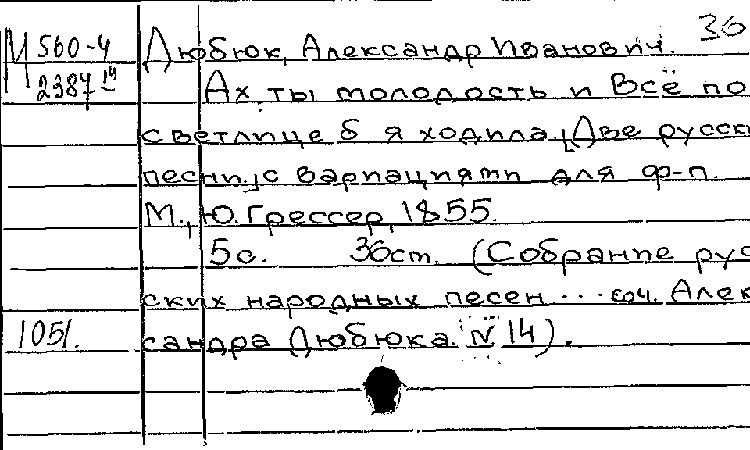 30
М 560-4 Дюбюк, Александр Иванович.
2387 14 Ах, ты молодость и Всё по
светлице б я ходила. [Две русск
песни.] с вариациями для ф-п.
М., Ю. Грессер, 1855.
5с. 30ст. (Собрание рус
ских народных песен ... соч. Алек
1051. сандра Дюбюка. № 14).